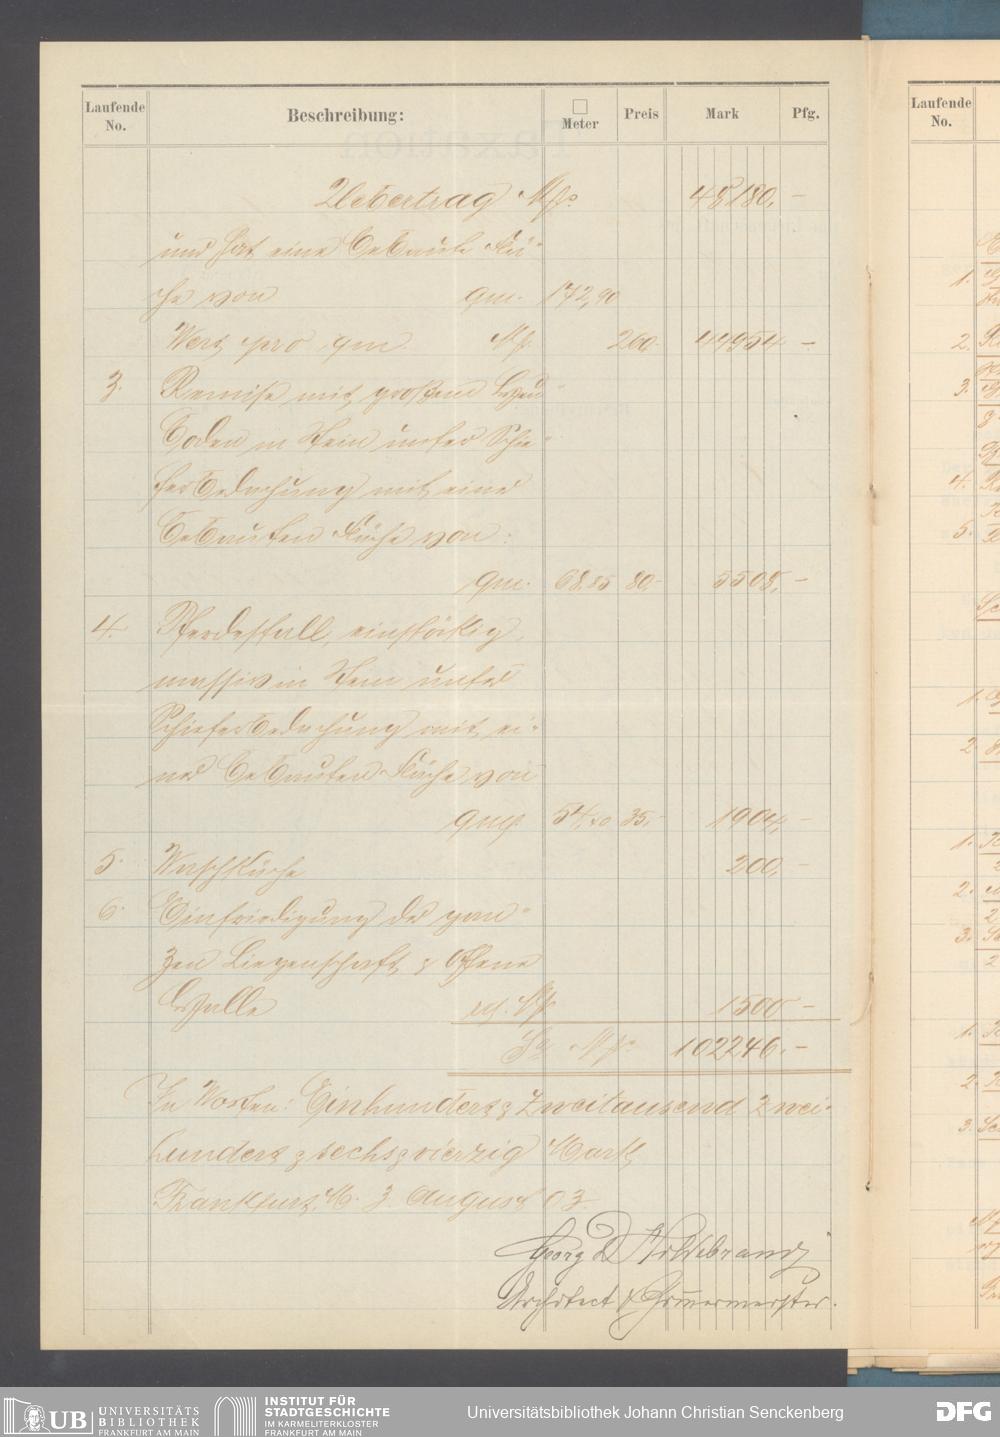 Laufende No. Beschreibung: □ Meter Preis Mark Pfg.
Uebertrag Mk. 48180,–
und hat eine bebaute Flä-
che von qm. 172,90
Wert pro qm Mk. 260. 44954 –
3. Remise mit großem Heu-
boden in Stein unter Schie-
ferbedachung mit einer
bebauten Fläche von:
qm. 68,85 80.– 5508,–
4. Pferdestall, einstöckig,
massiv in Stein unter
Schieferbedachung mit ei-
ner bebauten Fläche von
qm. 54,40 35,– 1904,–
5. Waschküche 200,–
6. Einfriedigung der gan-
zen Liegenschaft & offene
Halle Mk. 1500 –
Sa. Mk. 102246.–
In Worten: Einhundert & Zweitausend Zwei-
hundert & sechs & vierzig Mark
Frankfurt M. 3. August 03.
Georg D Hildebrand
Architect & Zimermeister.
Laufende No.
1.
2.
3.
4.
5.
1.
2
1.
2.
3.
1.
2.
3.
UB UNIVERSITÄTS BIBLIOTHEK FRANKFURT AM MAIN
INSTITUT FÜR STADTGESCHICHTE IM KARMELITERKLOSTER FRANKFURT AM MAIN
Universitätsbibliothek Johann Christian Senckenberg
DFG